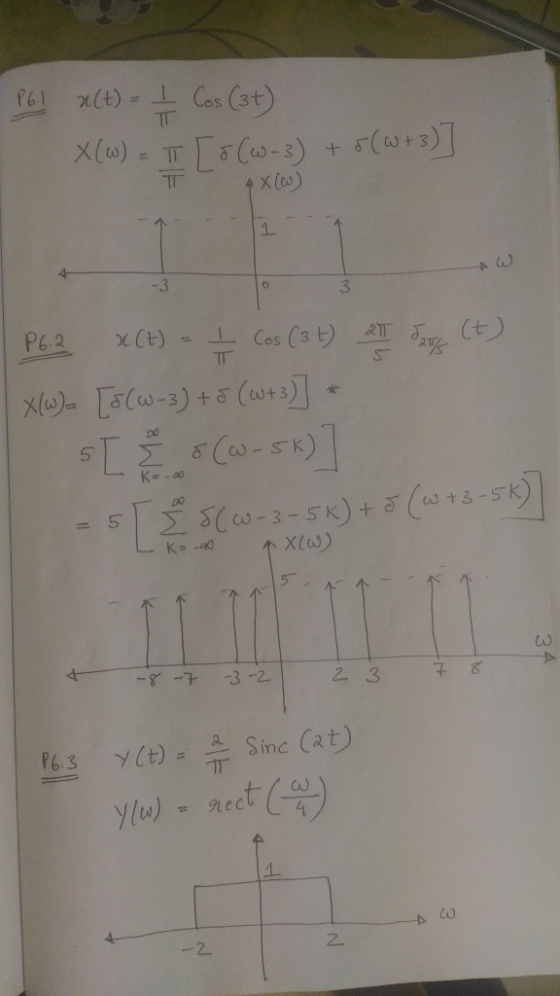 P6.1 x(t) = 1/π Cos(3t)
X(ω) = π/π [δ(ω-3) + δ(ω+3)]
X(ω)
1
ω
-3 0 3
P6.2 x(t) = 1/π Cos(3t) 2π/5 δ_2π/5 (t)
X(ω) = [δ(ω-3) + δ(ω+3)] *
5 [ ∞ Σ K=-∞ δ(ω-5K) ]
= 5 [ ∞ Σ K=-∞ δ(ω-3-5K) + δ(ω+3-5K) ]
X(ω)
5
ω
-8 -7 -3 -2 2 3 7 8
P6.3 Y(t) = 2/π Sinc(2t)
Y(ω) = rect(ω/4)
1
ω
-2 2